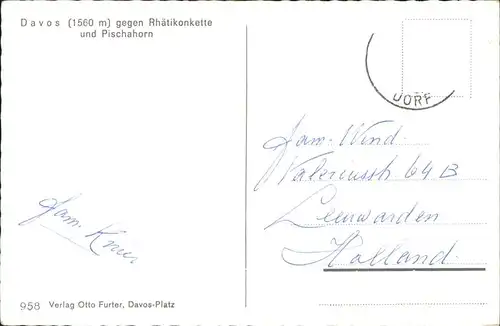 Davos (1560 m) gegen Rhätikonkette
und Pischahorn
DORF
Fam. Wind.
Valeriusstr. 64 B
Leeuwarden
Holland.
Fam.
958 Verlag Otto Furter, Davos-Platz